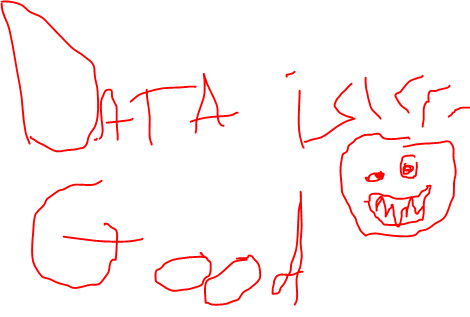 DATA is
Good